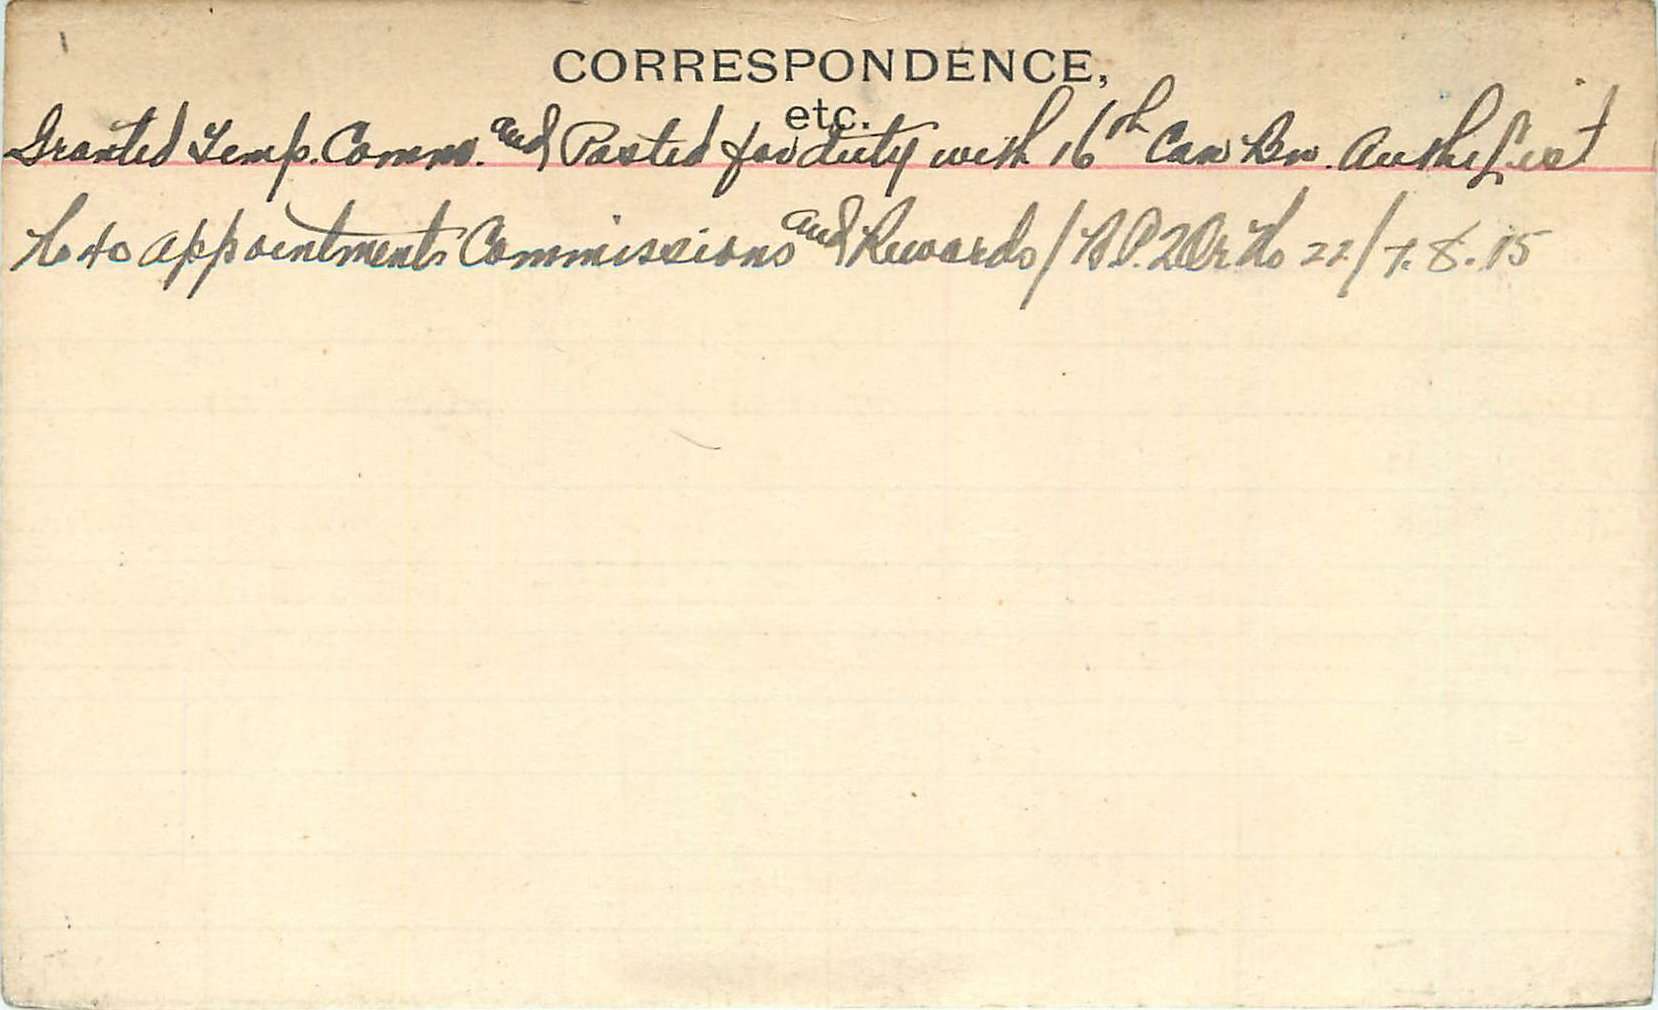 CORRESPONDENCE,
etc.
Granted Temp. Comm. and Posted for duty with 16th Can Bn. Auth List
No 40 Appointments Commissions and Rewards / Pt. 2 Or No 22 / 7.8.15